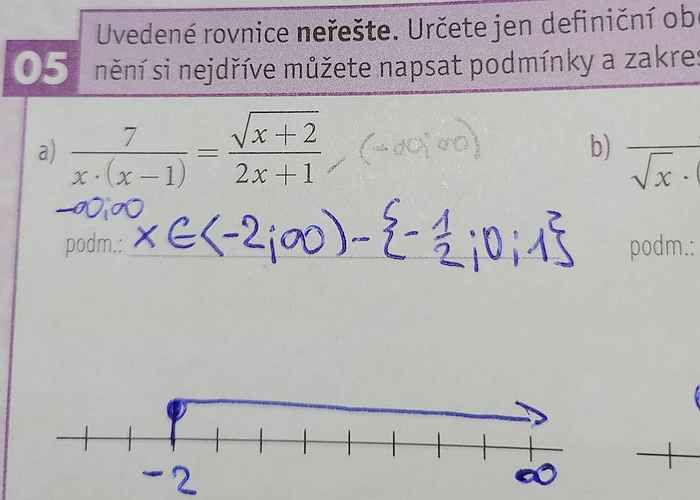 05
Uvedené rovnice neřešte. Určete jen definiční ob
nění si nejdříve můžete napsat podmínky a zakres
a) 7 / x · (x − 1) = √x + 2 / 2x + 1 (-∞;∞)
b) √x · (
-∞;∞
podm.: x ∈ <-2;∞) - {-1/2;0;1}
podm.:
-2 ∞